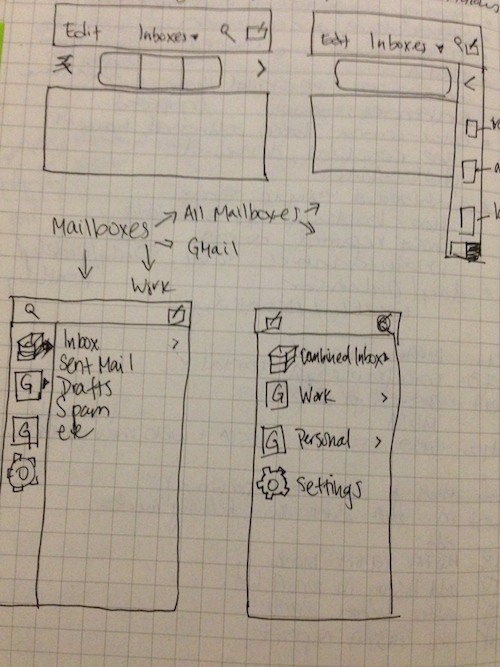 Edit Inboxes
Edit Inboxes
Mailboxes
All Mailboxes
GMail
Work
Inbox
Sent Mail
Drafts
Spam
etc
G
G
Combined Inbox
G Work
G Personal
Settings